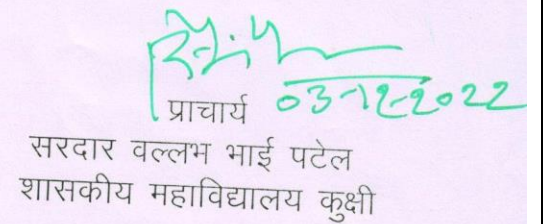 03-12-2022
प्राचार्य
सरदार वल्लभ भाई पटेल
शासकीय महाविद्यालय कुक्षी